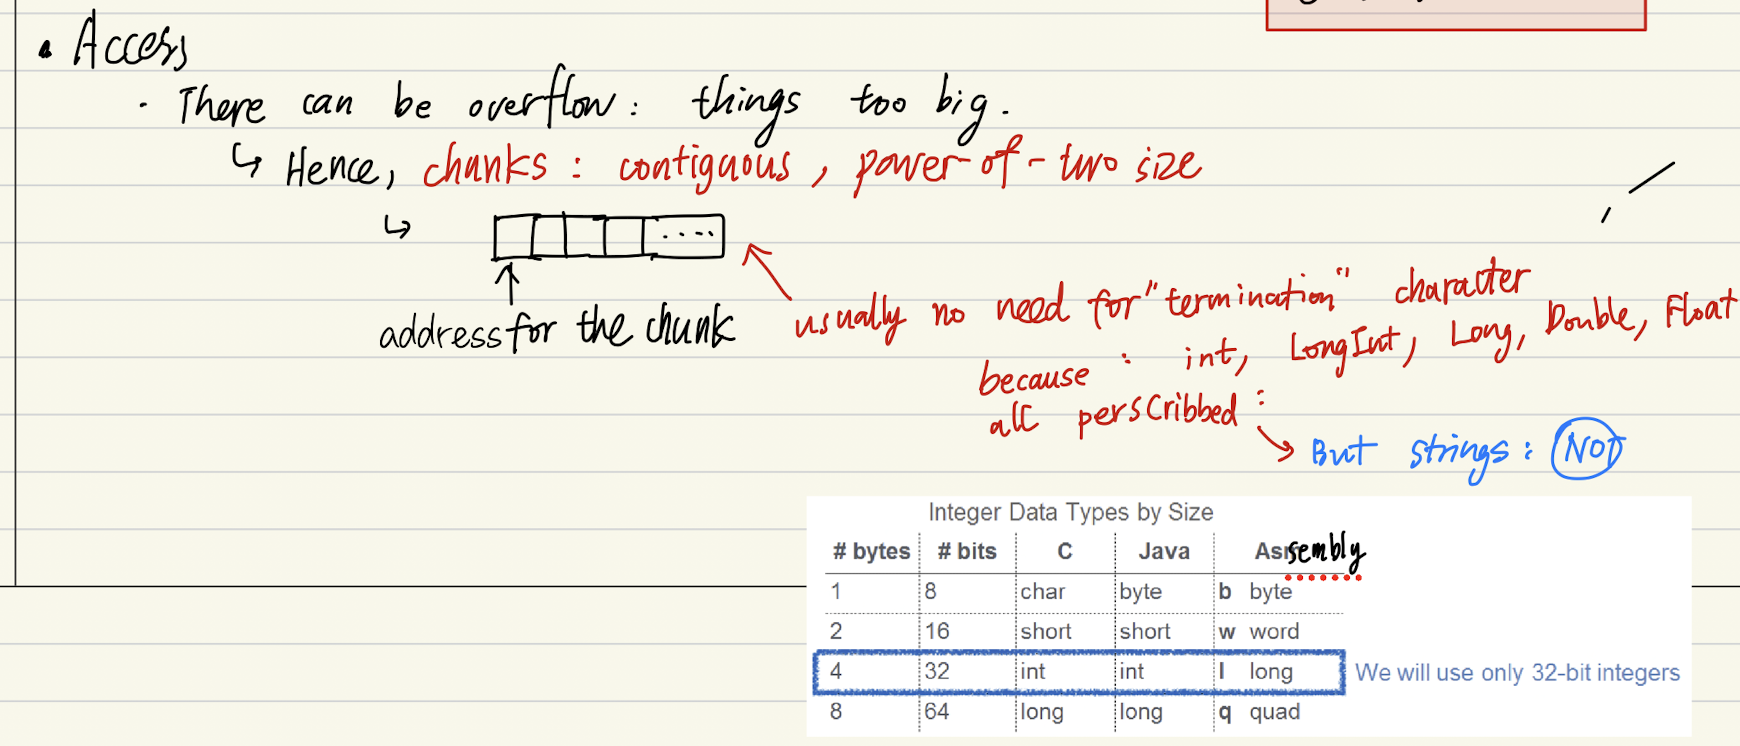 • Access
· There can be overflow: things too big.
↳ Hence, chunks: contiguous, power-of-two size
↳
....
address for the chunk
usually no need for "termination" character
because: int, LongInt, Long, Double, Float
all perscribbed:
But strings: NOT
Integer Data Types by Size
# bytes # bits C Java Assembly
1 8 char byte b byte
2 16 short short w word
4 32 int int l long We will use only 32-bit integers
8 64 long long q quad